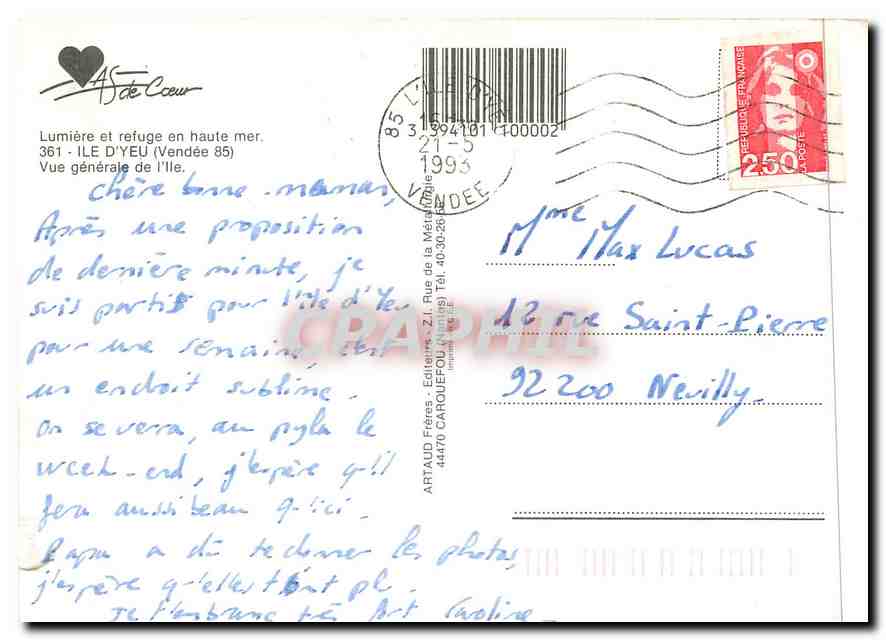 AS de Cœur
Lumière et refuge en haute mer.
361 - ILE D'YEU (Vendée 85)
Vue générale de l'Ile.
Chère bonne-maman,
Après une proposition
de dernière minute, je
suis partis pour l'île d'Yeu
pour une semaine, c'est
un endroit sublime.
On se verra, au pyla le
week-end, j'espère qu'il
fera aussi beau qu'ici.
Papa a dû te donner les photos,
j'espère qu'elles t'ont plu.
Je t'embrasse très fort Caroline
ARTAUD Frères - Editeurs - Z.I. Rue de la Métallurgie
44470 CARQUEFOU (Nantes) Tél. 40-30-26
3 394101 100002
85 L'ILE D'YEU
21-5
1993
VENDEE
REPUBLIQUE FRANÇAISE
2,50
LA POSTE
Mme Max Lucas
12 rue Saint-Pierre
92200 Neuilly.
CPAPHIL